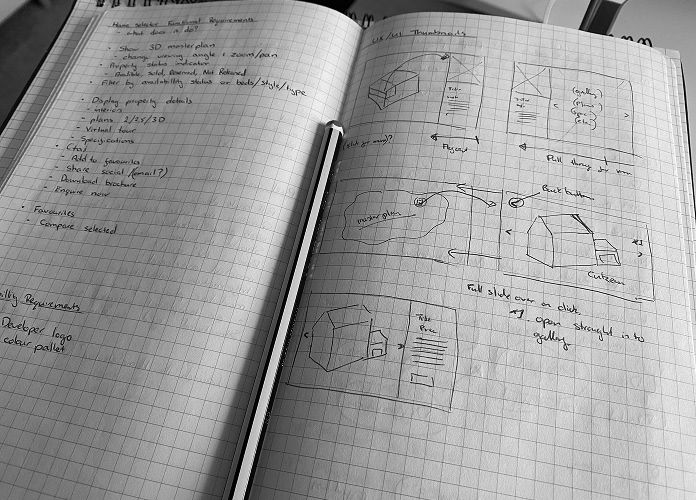 Home selector Functional Requirements
- what does it do?
- Show 3D masterplan
- change viewing angle & zoom/pan
- Property status indicator
Available, Sold, Reserved, Not Released
- Filter by availability status or beds/style/type
- Display property details
- interiors
- plans 2/2.5/3D
- Virtual tour
- Specifications
- Ctas
- Add to favourites
- Share social (email?)
- Download brochure
- Enquire now
- Favourites
- Compare selected
Requirements
Developer logo
colour pallet
UX/UI Thumbnails
Title
info
Title
info
(gallery)
(plans)
(spec)
(etc)
Flyout
Full library for more
master plan
Back button
*1
Cutscene
Full slide over on click
*1. open straight in to
gallery
Title
Price